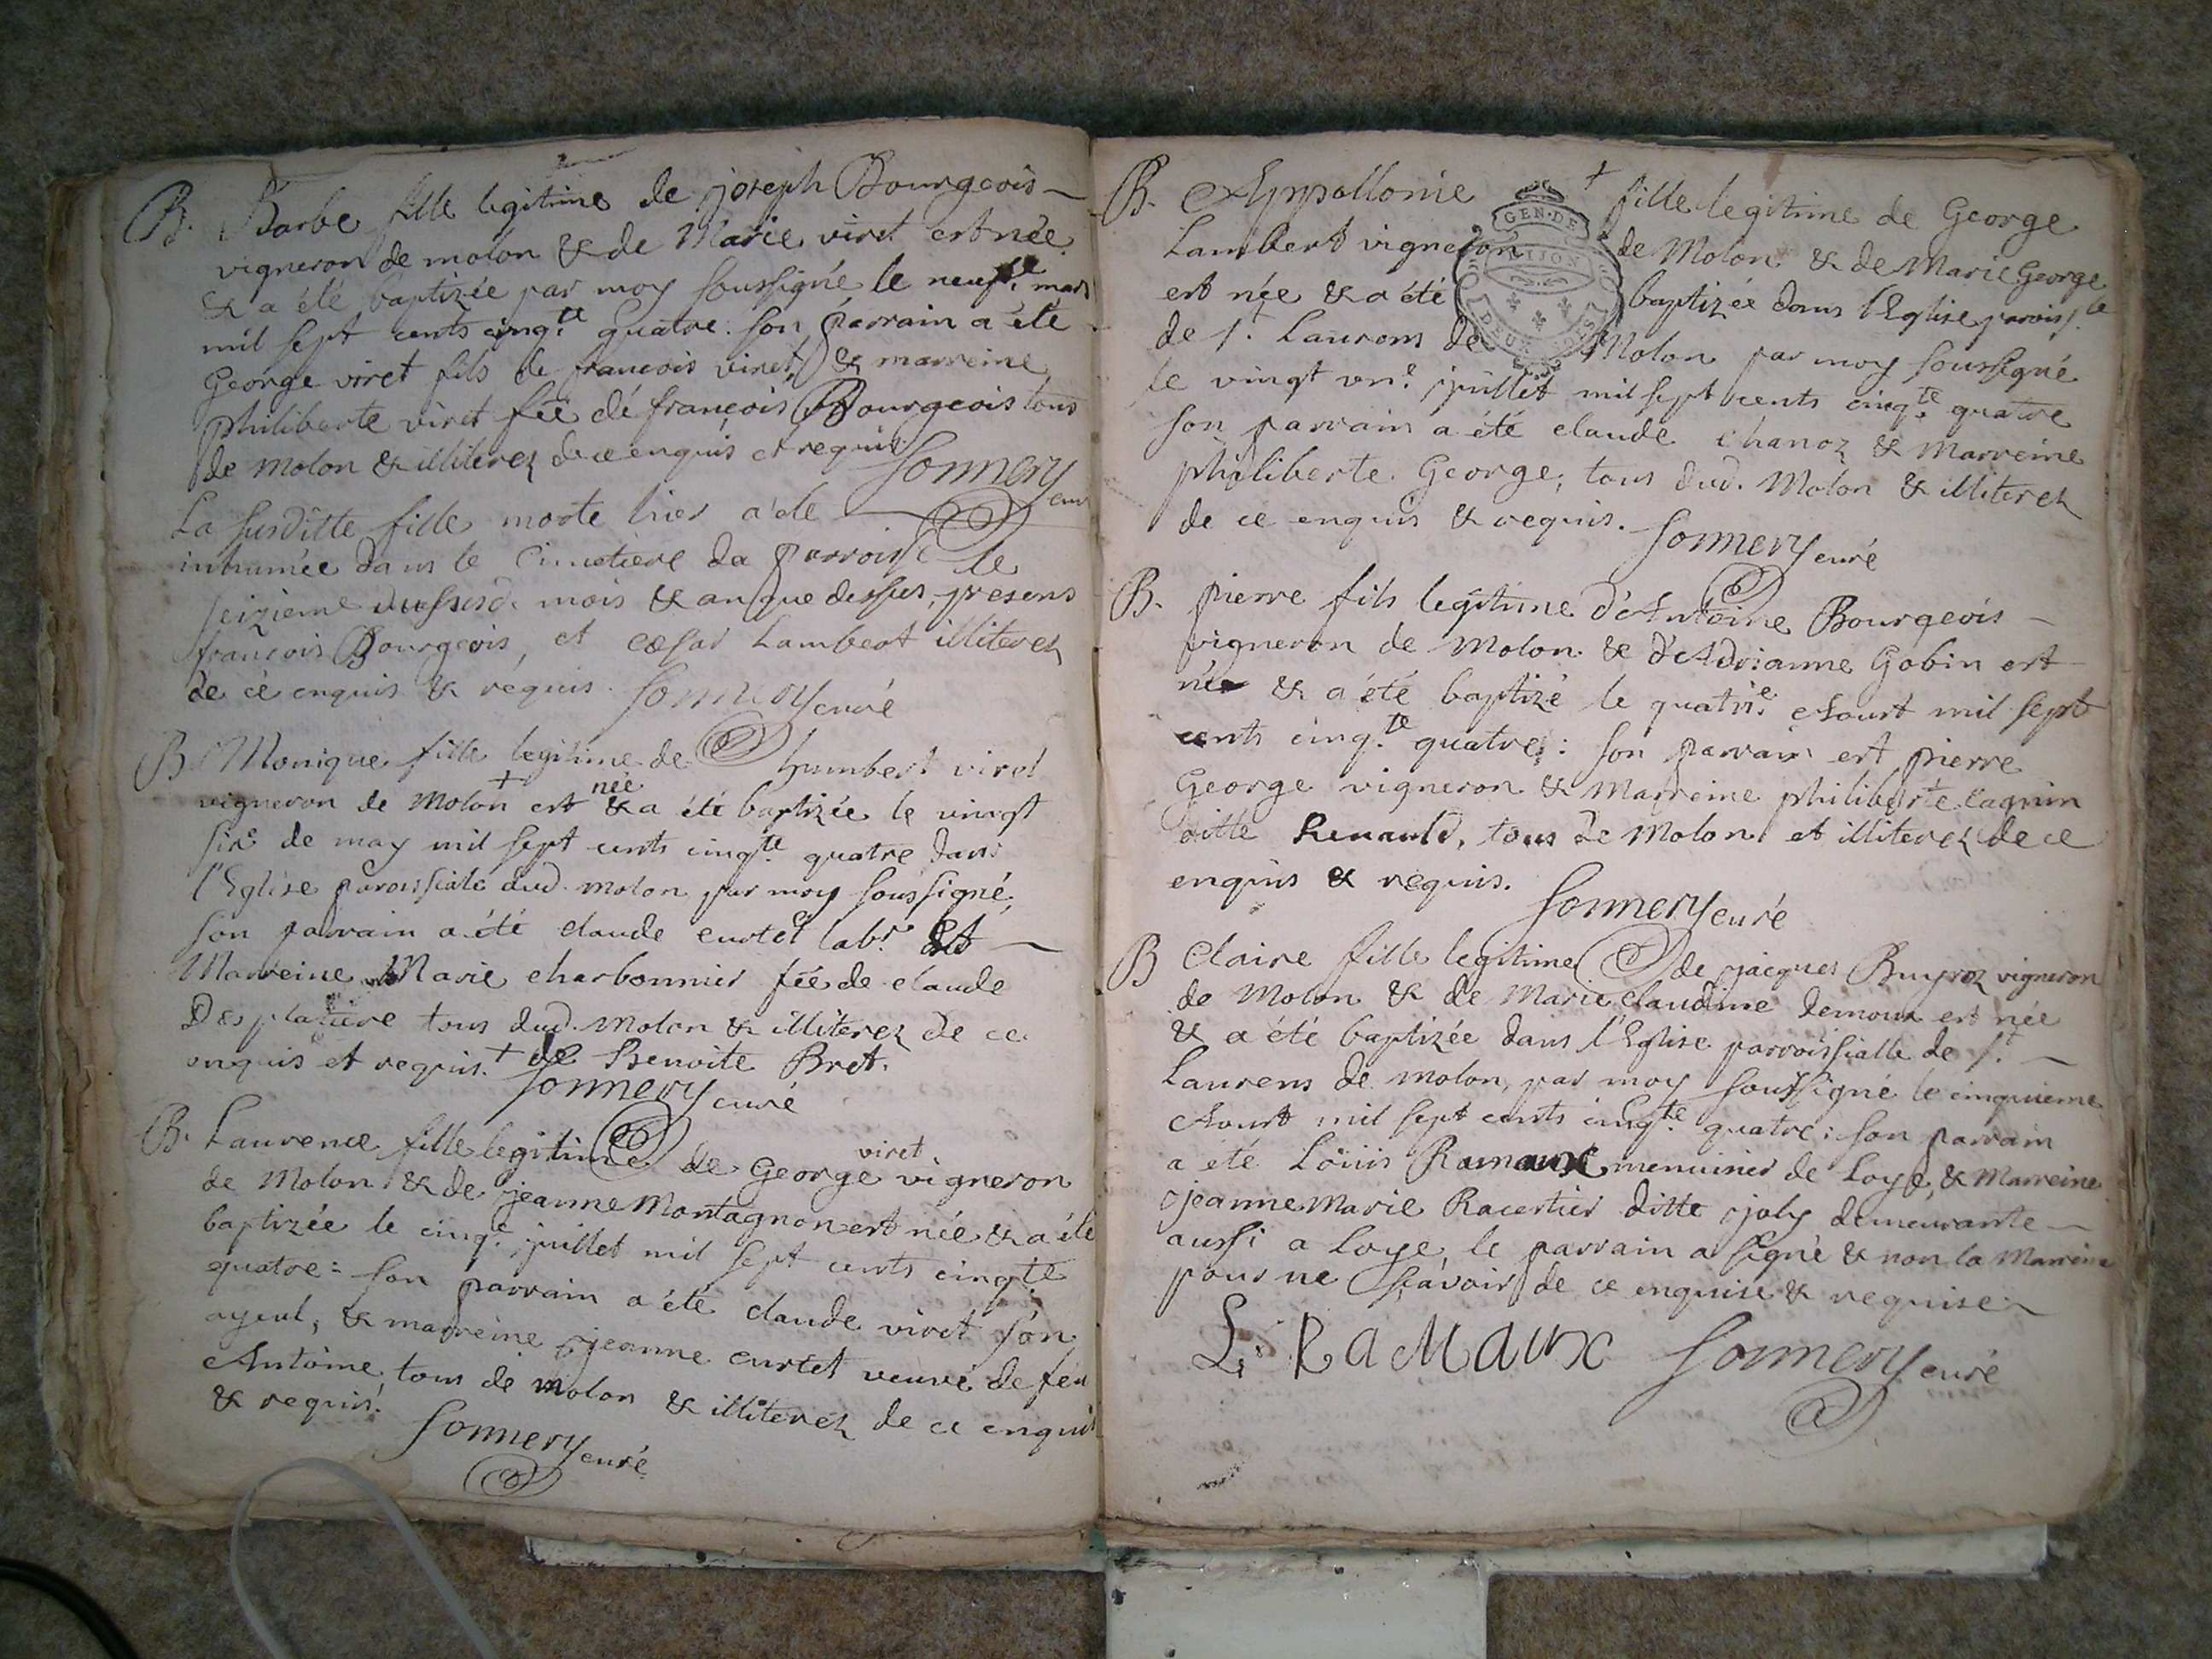 B. Barbe fille legitime de joseph Bourgeois
vigneron de molon & de Marie viret est née
& a été baptizée par moy soussigné le neufe. mars
mil sept cents cinqte quatre. son parrain a été
George viret fils de francois viret, & marreine
philiberte viret fée dé françois Bourgeois tous
de molon & illiterez de ce enquis et requis
Sonnery curé
La susditte fille morte hier a été
inhumée dans le Cimetiere da parroisse le
seizieme dususd. mois & an que dessus, presens
francois Bourgeois, et cæsar Lambert illiterez
de ce enquis & requis. Sonnery curé
B. Monique fille legitime de humbert viret
vigneron de Molon + est née & a été baptizée le vingt
sixe de may mil sept cents cinqte. quatre dans
l'Eglise paroissiale dud. molon par moy soussigné,
son parrain a été claude curtet labr. Et
Marreine Marie charbonnier fée de claude
Desplatiere tous dud. Molon & illiterez de ce
enquis et requis. + de Benoite Bret.
Sonnery curé
B. Laurence fille legitime de George viret vigneron
de Molon & de jeanne Montagnon est née & a été
baptizée le cinqe. juillet mil sept cents cinqte
quatre: son parrain a été claude viret son
ayeul, & marreine jeanne curtet veuve de feu
Antoine tous de molon & illiterez de ce enquis
& requis. Sonnery curé
B. Appollonie + fille legitime de George
Lambert vigneron de Molon & de Marie George
est née & a été baptizée dans l'Eglise paroisse.le
de St. Laurens de Molon par moy soussigné
le vingt une. juillet mil sept cents cinqte. quatre
son parrain a été claude chanoz & Marreine
philiberte George, tous dud. Molon & illiterez
de ce enquis & requis. Sonnery curé
GEN. DE
DIJON
DEUX
B. pierre fils legitime d'Antoine Bourgeois
vigneron de Molon & d'Adrianne Gobin est
né & a été baptizé le quatrie. Aoust mil sept
cents cinqte. quatre: son parrain est pierre
George vigneron & Marreine philiberte Cagnin
ditte Renauld, tous de Molon et illiterez de ce
enquis & requis. Sonnery curé
B Claire fille legitime de jacques Buyroz vigneron
de Molon & de Marie claudine demoux est née
& a été baptizée dans l'Eglise parroissialle de St.
Laurens de molon, par moy soussigné le cinquieme
Aoust mil sept cents cinqte. quatre: son parrain
a été Loüis Ramaux menuisier de Loye, & Marreine
jeanne Marie Racurtier ditte joly demeurante
aussi a Loye, le parrain a signé & non la Marreine
pour ne sçavoir de ce enquise & requise
L. RaMaux Sonnery curé